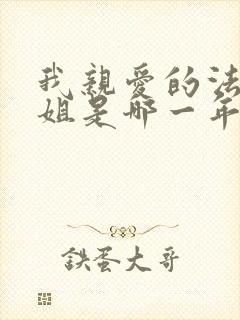 我親愛的法
姐是哪一年
鉄蛋大哥